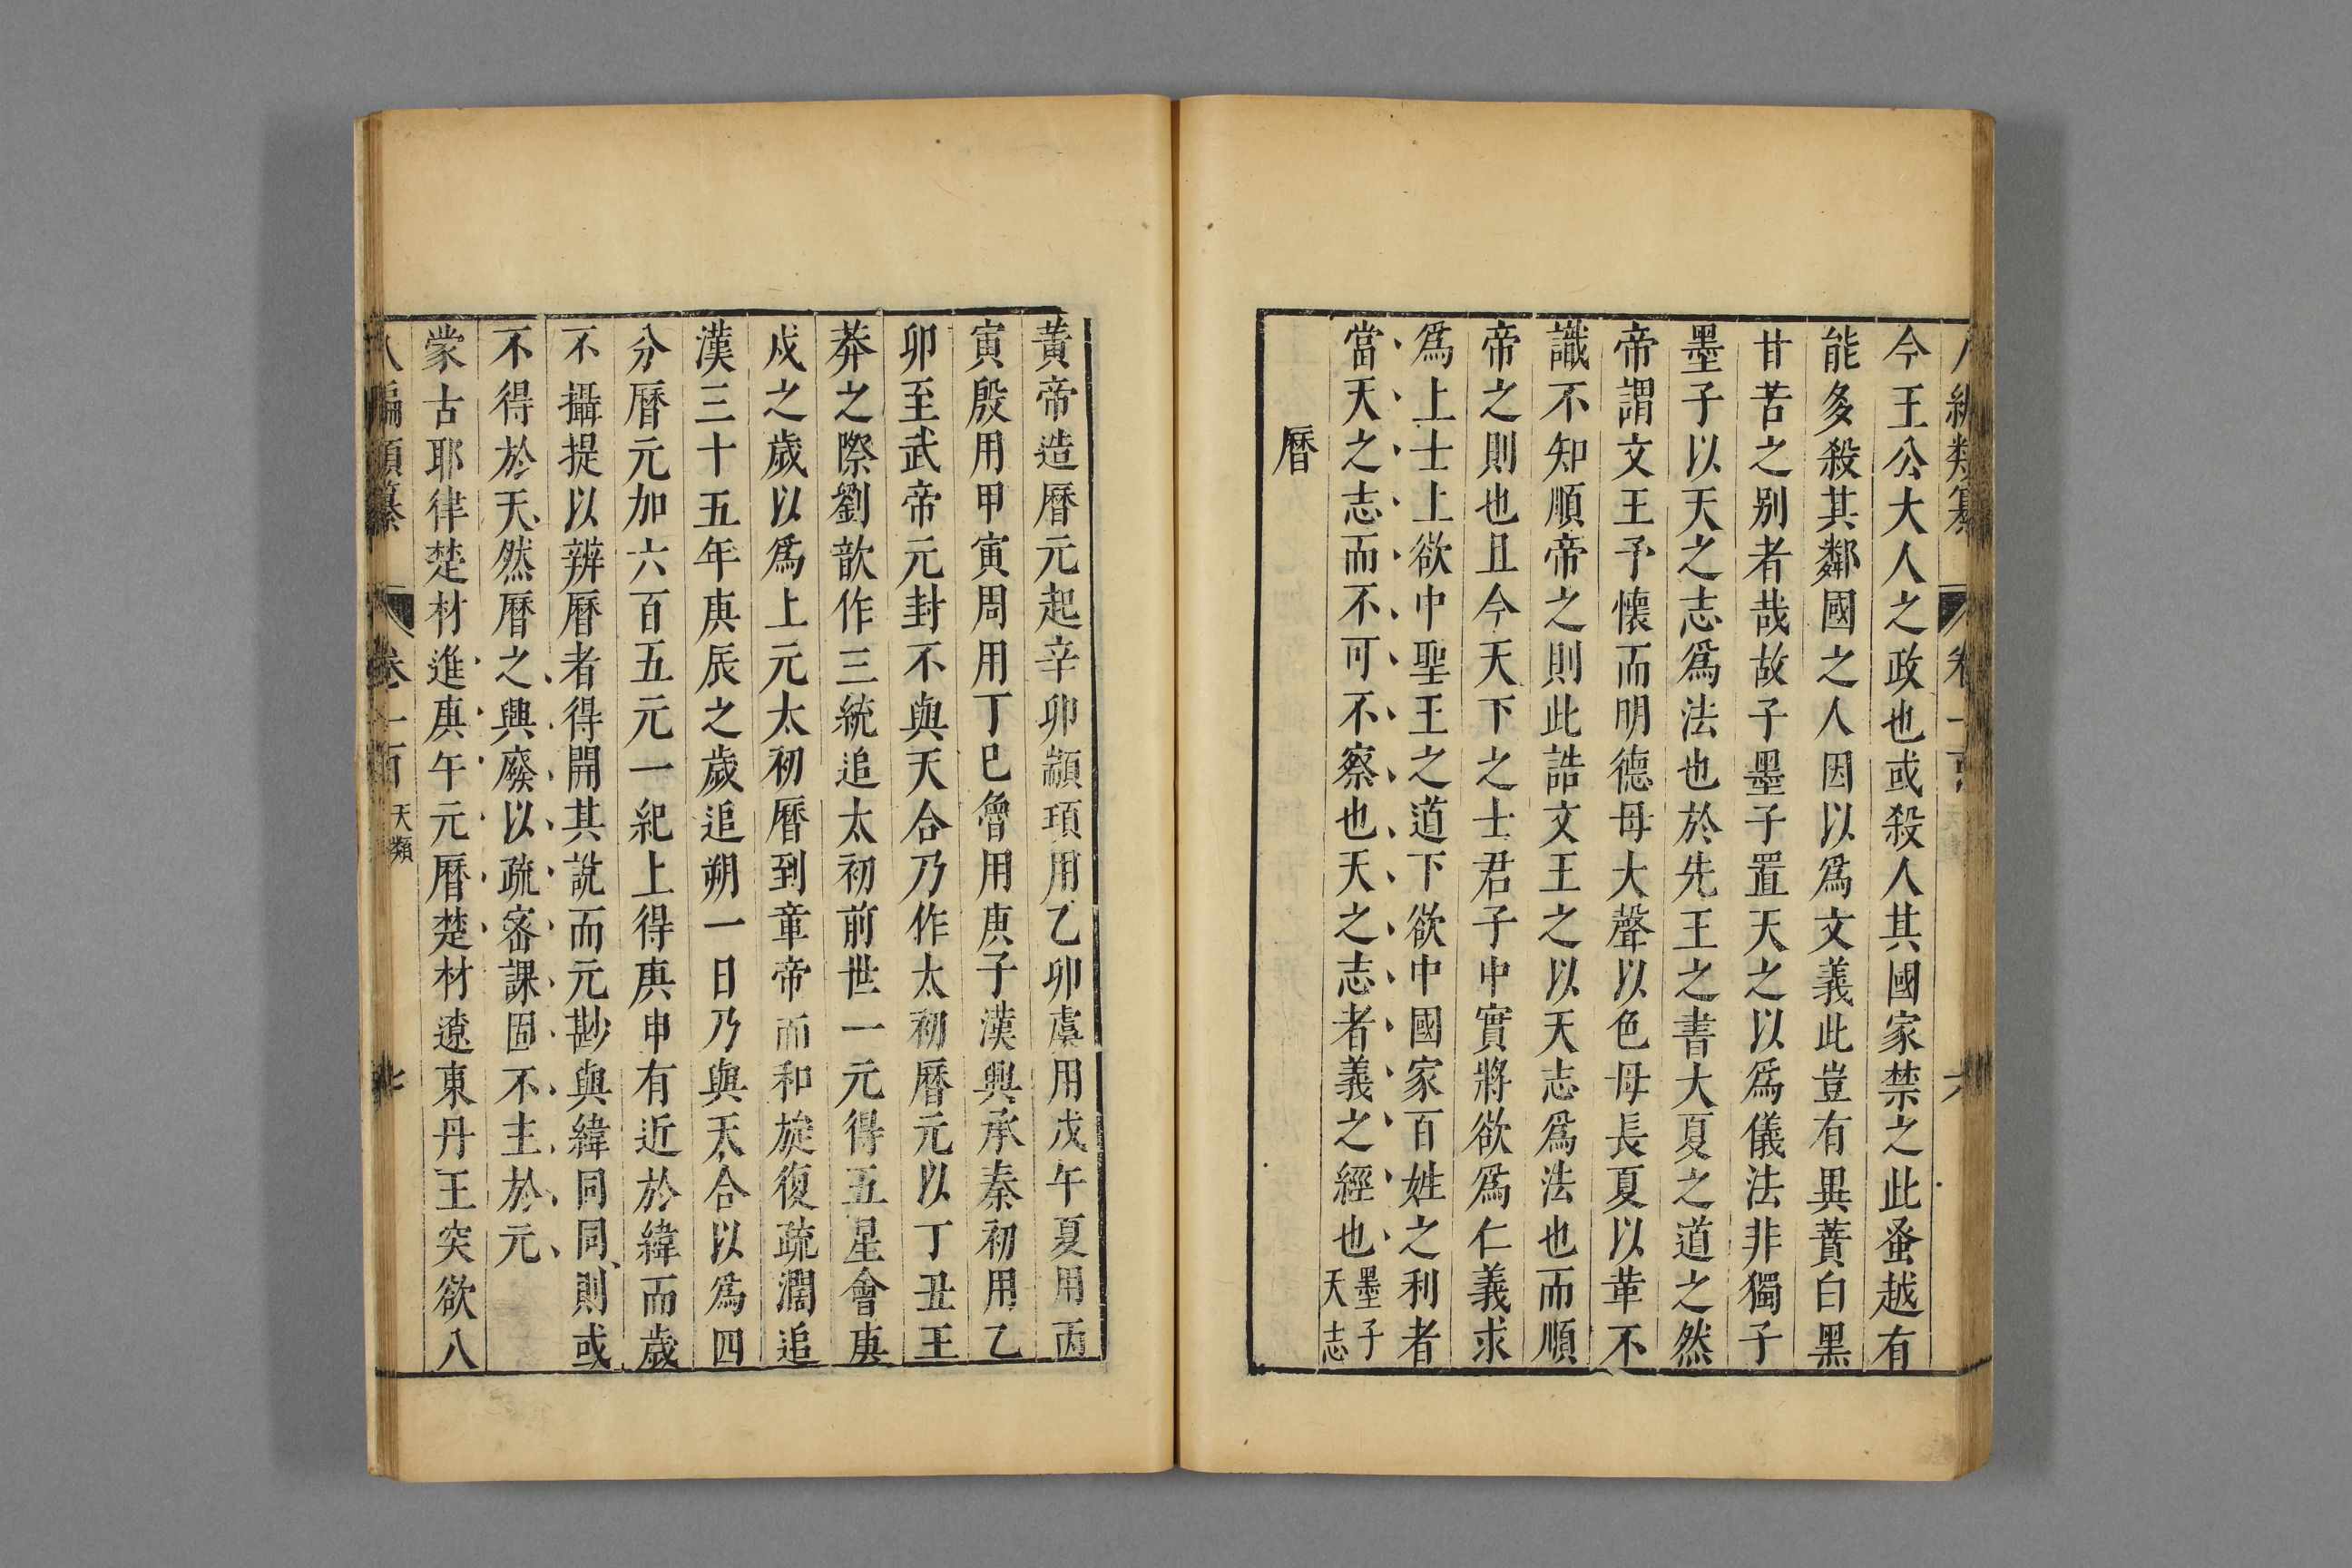 今王公大人之政也或殺人其國家禁之此蚤越有
能多殺其鄰國之人因以爲文義此豈有異蕡白黑
甘苦之别者哉故子墨子置天之以爲儀法非獨子
墨子以天之志爲法也於先王之書大夏之道之然
帝謂文王予懷而明德毋大聲以色毋長夏以革不
識不知順帝之則此誥文王之以天志爲法也而順
帝之則也且今天下之士君子中實將欲爲仁義求
爲上士上欲中聖王之道下欲中國家百姓之利者
當天之志而不可不察也天之志者義之經也墨子天志
曆
黃帝造曆元起辛卯顓頊用乙卯虞用戊午夏用丙
寅殷用甲寅周用丁巳魯用庚子漢興承秦初用乙
卯至武帝元封不與天合乃作太初曆元以丁丑王
莽之際劉歆作三統追太初前世一元得五星會庚
戍之歲以爲上元太初曆到章帝而和旋復疏濶追
漢三十五年庚辰之歲追朔一日乃與天合以爲四
分曆元加六百五元一紀上得庚申有近於緯而歲
不攝提以辨曆者得開其說而元尠與緯同同則或
不得於天然曆之興廢以疏密課固不主於元
蒙古耶律楚材進庚午元曆楚材遼東丹王突欲八
八編類纂 卷一百 天類 七